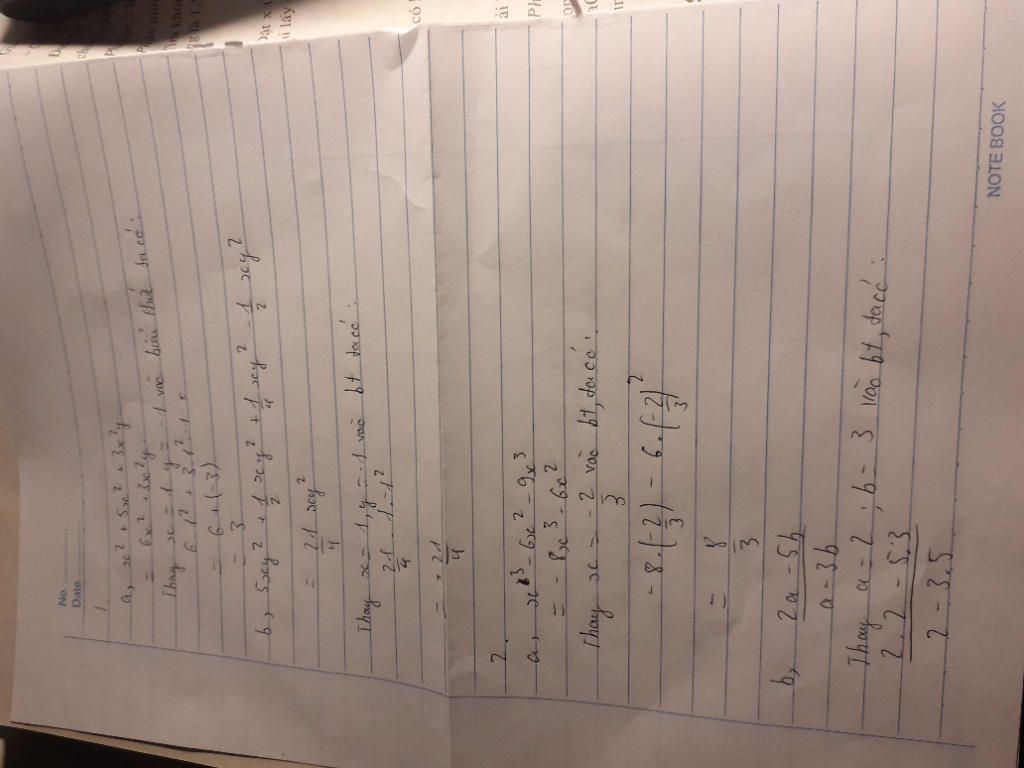 No. ..................
Date ..................
1.
a, x² + 5x² + 3x²y
= 6x² + 3x²y
Thay x = 1 y = -1 vào biểu thức ta có:
6.1² + 3.1².-1 =
= 6 + (-3)
= 3
b, 5xy² + 1/2 xy² + 1/4 xy² - 1/2 xy²
= 21/4 xy²
Thay x = 1, y = -1 vào bt ta có:
21/4 .1.-1²
= + 21/4
2.
a, x³ - 6x² - 9x³
= - 8x³ - 6x²
Thay x = -2/3 vào bt, ta có:
- 8.(-2/3) - 6.(-2/3)²
= 8/3
b, 2a - 5b
a - 3b
Thay a = 2; b = 3 vào bt, ta có:
2.2 - 5.3
2 - 3.5
NOTE BOOK